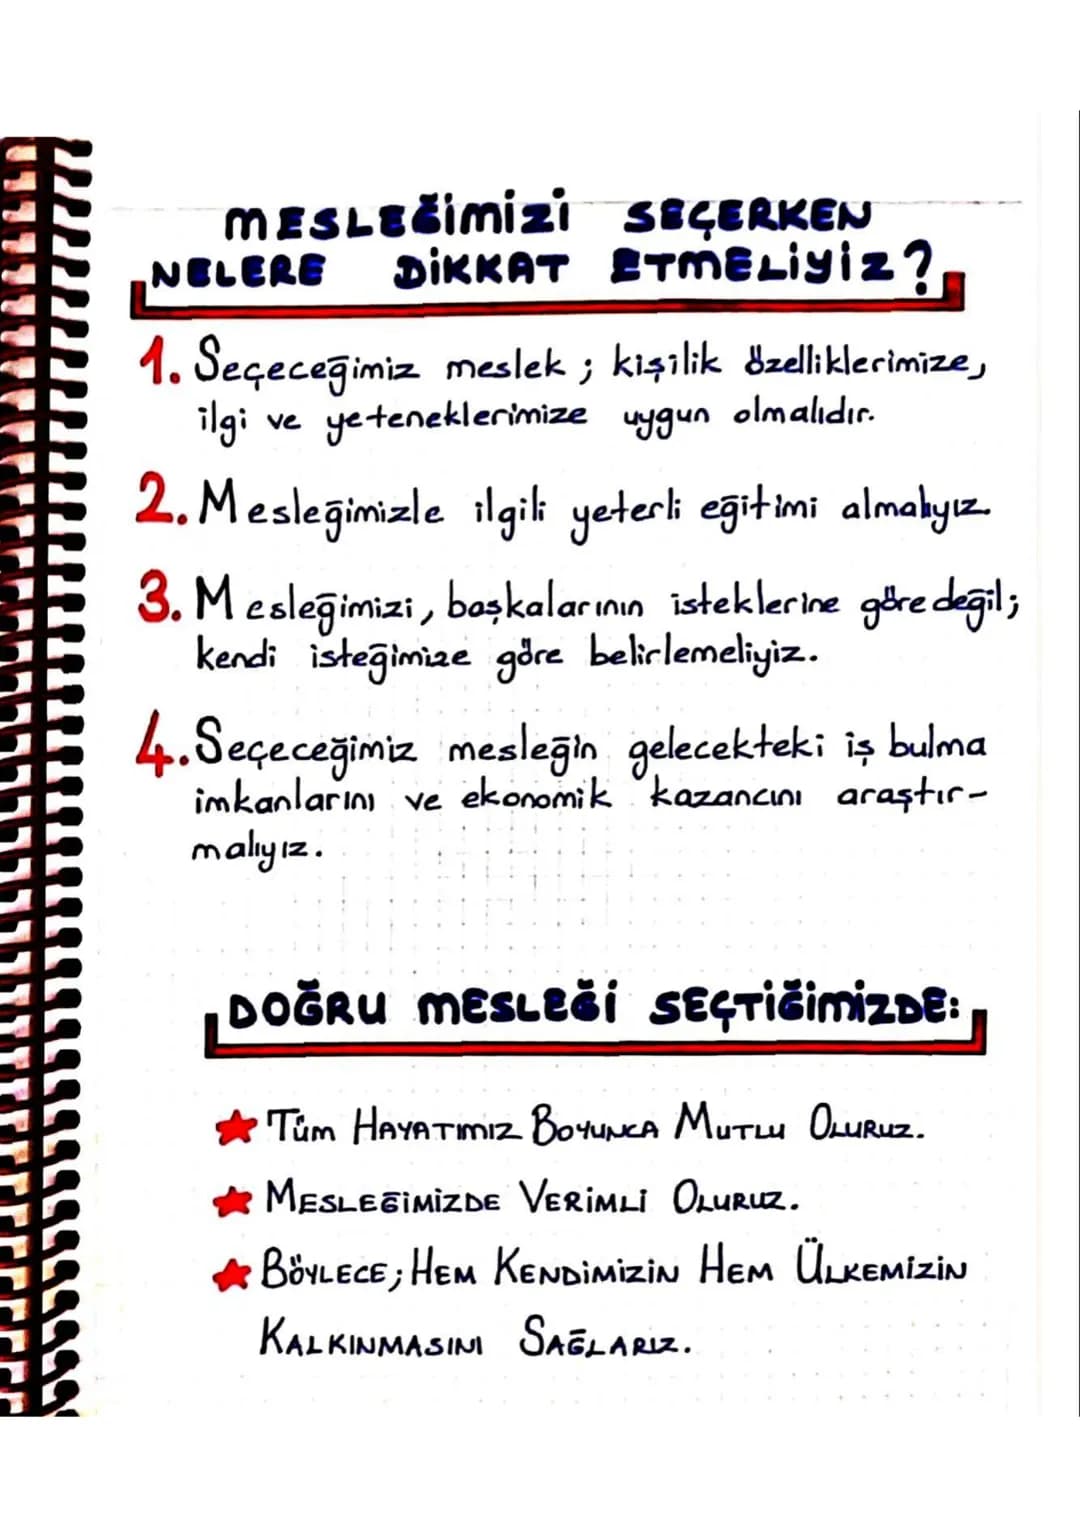 MESLEĞİMİZİ SEÇERKEN
NELERE DİKKAT ETMELİYİZ?
1. Seçeceğimiz meslek ; kişilik özelliklerimize,
ilgi ve yeteneklerimize uygun olmalıdır.
2. Mesleğimizle ilgili yeterli eğitimi almalıyız.
3. Mesleğimizi, başkalarının isteklerine göre değil;
kendi isteğimize göre belirlemeliyiz.
4. Seçeceğimiz mesleğin gelecekteki iş bulma
imkanlarını ve ekonomik kazancını araştır-
malıyız.
DOĞRU MESLEĞİ SEÇTİĞİMİZDE:
★ TÜM HAYATIMIZ BOYUNCA MUTLU OLURUZ.
★ MESLEĞİMİZDE VERİMLİ OLURUZ.
★ BÖYLECE; HEM KENDİMİZİN HEM ÜLKEMİZİN
KALKINMASINI SAĞLARIZ.